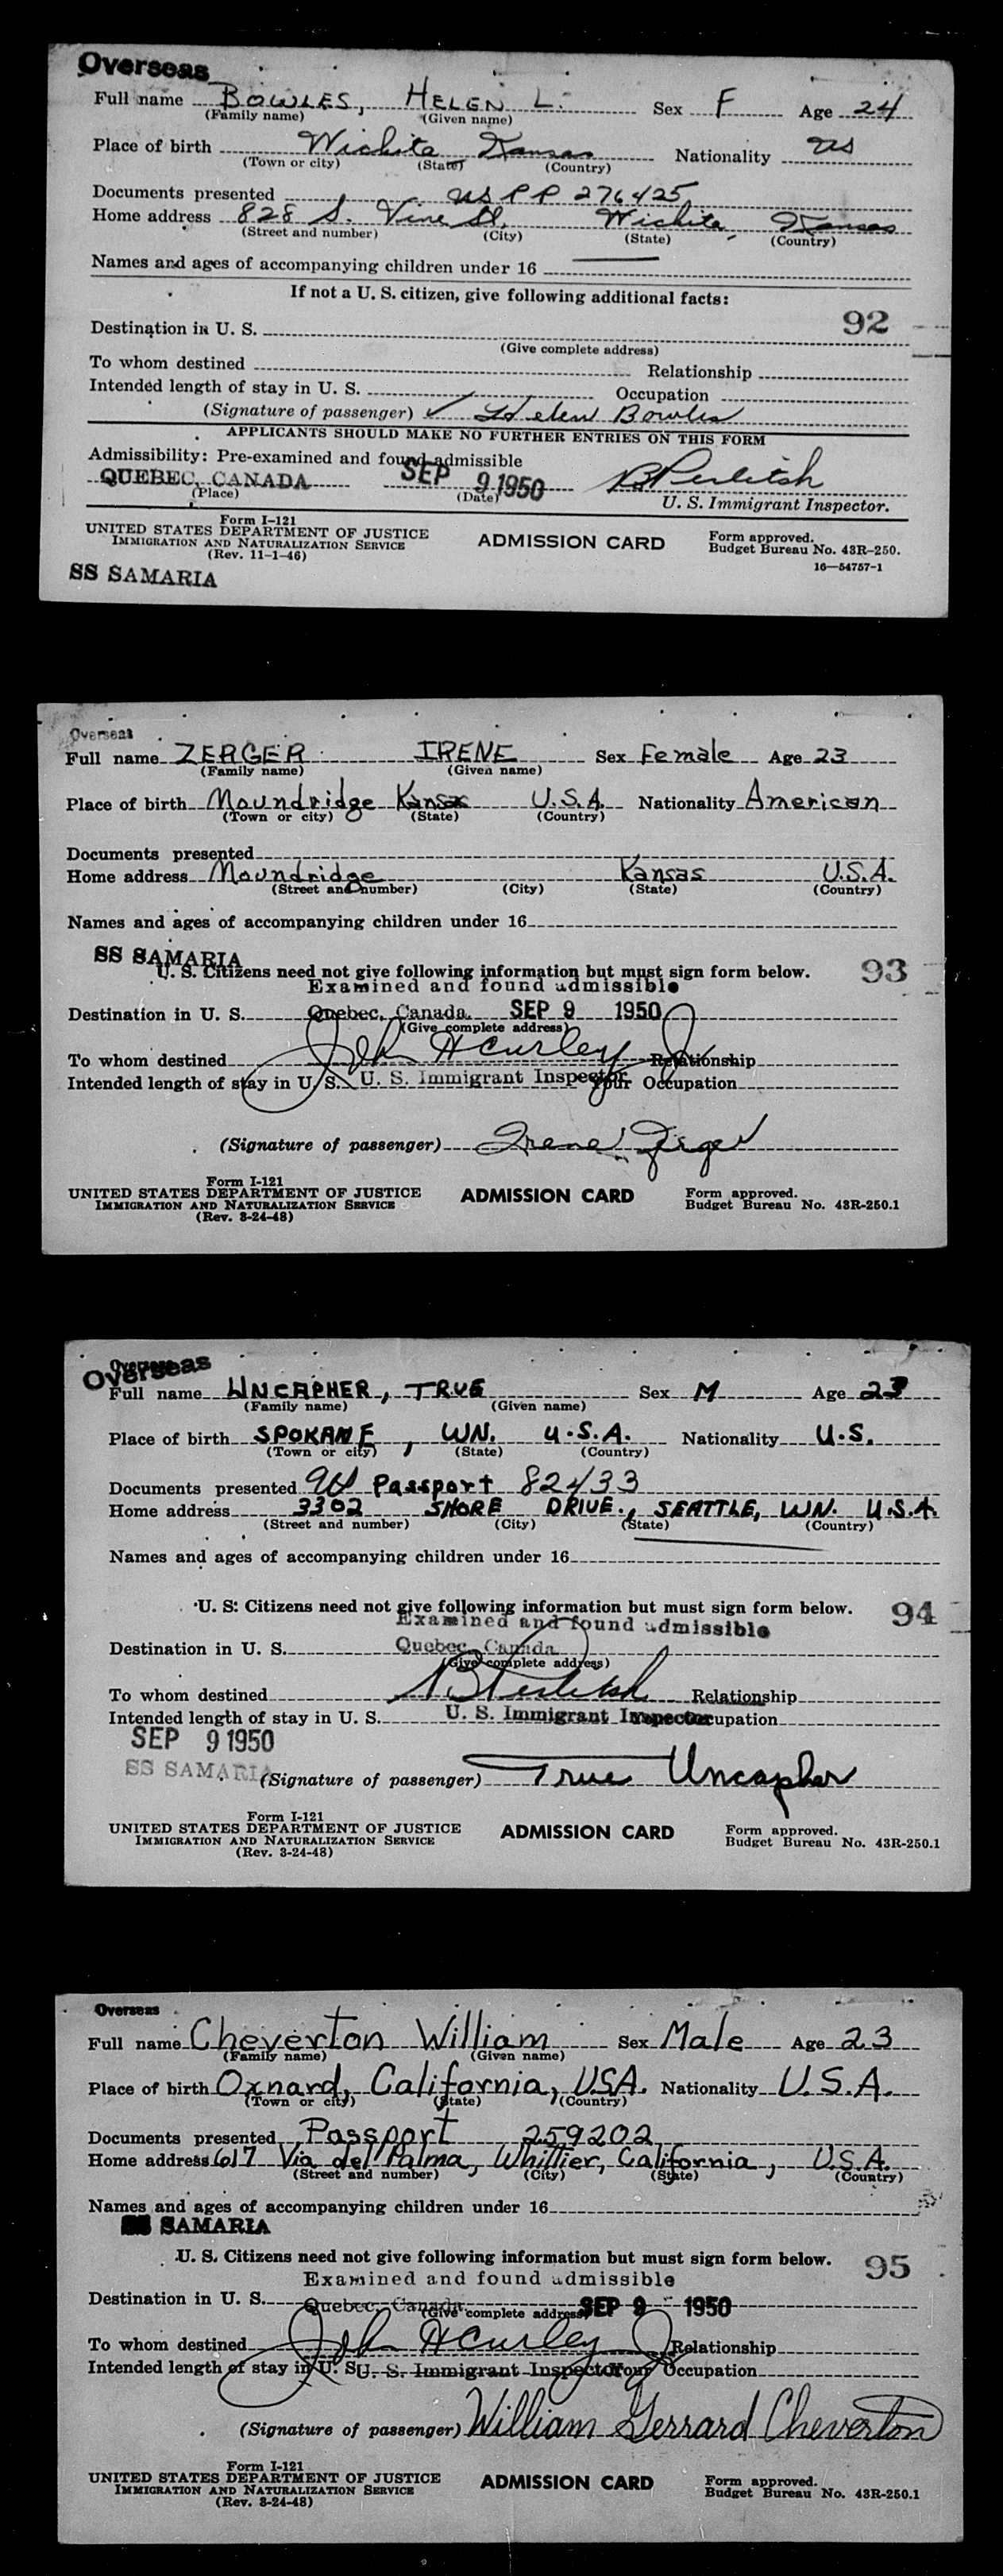 Overseas
Full name BOWLES, HELEN L. Sex F Age 24
(Family name) (Given name)
Place of birth Wichita Kansas Nationality US
(Town or city) (State) (Country)
Documents presented US PP 276425
Home address 828 S. Vine St, Wichita, Kansas
(Street and number) (City) (State) (Country)
Names and ages of accompanying children under 16
If not a U. S. citizen, give following additional facts:
92
Destination in U. S.
(Give complete address)
To whom destined Relationship
Intended length of stay in U. S. Occupation
(Signature of passenger) ✓ Helen Bowles
APPLICANTS SHOULD MAKE NO FURTHER ENTRIES ON THIS FORM
Admissibility: Pre-examined and found admissible
QUEBEC, CANADA SEP 9 1950
(Place) (Date) U. S. Immigrant Inspector.
Form I-121
UNITED STATES DEPARTMENT OF JUSTICE
IMMIGRATION AND NATURALIZATION SERVICE
(Rev. 11-1-46)
ADMISSION CARD
Form approved.
Budget Bureau No. 43R-250.
16—54757-1
SS SAMARIA
Overseas
Full name ZERGER IRENE Sex Female Age 23
(Family name) (Given name)
Place of birth Moundridge Kansas U.S.A. Nationality American
(Town or city) (State) (Country)
Documents presented
Home address Moundridge Kansas U.S.A.
(Street and number) (City) (State) (Country)
Names and ages of accompanying children under 16
SS SAMARIA
U. S. Citizens need not give following information but must sign form below.
93
Examined and found admissible
Destination in U. S. Quebec, Canada SEP 9 1950
(Give complete address)
To whom destined John H Curley Relationship
Intended length of stay in U. S. U. S. Immigrant Inspector Your Occupation
(Signature of passenger) Irene Zerger
Form I-121
UNITED STATES DEPARTMENT OF JUSTICE
IMMIGRATION AND NATURALIZATION SERVICE
(Rev. 3-24-48)
ADMISSION CARD
Form approved.
Budget Bureau No. 43R-250.1
Overseas
Full name UNCAPHER, TRUE Sex M Age 23
(Family name) (Given name)
Place of birth SPOKANE, WN. U.S.A. Nationality U.S.
(Town or city) (State) (Country)
Documents presented US Passport 82433
Home address 3302 SHORE DRIVE., SEATTLE, WN. U.S.A.
(Street and number) (City) (State) (Country)
Names and ages of accompanying children under 16
U. S. Citizens need not give following information but must sign form below.
94
Examined and found admissible
Destination in U. S. Quebec, Canada
(Give complete address)
To whom destined Relationship
Intended length of stay in U. S. U. S. Immigrant Inspector Occupation
SEP 9 1950
SS SAMARIA
(Signature of passenger) True Uncapher
Form I-121
UNITED STATES DEPARTMENT OF JUSTICE
IMMIGRATION AND NATURALIZATION SERVICE
(Rev. 3-24-48)
ADMISSION CARD
Form approved.
Budget Bureau No. 43R-250.1
Overseas
Full name Cheverton William Sex Male Age 23
(Family name) (Given name)
Place of birth Oxnard, California, USA. Nationality U.S.A.
(Town or city) (State) (Country)
Documents presented Passport 259202
Home address 617 Via del Palma, Whittier, California, U.S.A.
(Street and number) (City) (State) (Country)
Names and ages of accompanying children under 16
SS SAMARIA
U. S. Citizens need not give following information but must sign form below.
95
Examined and found admissible
Destination in U. S. Quebec, Canada SEP 9 1950
(Give complete address)
To whom destined John H Curley Relationship
Intended length of stay in U. S. U. S. Immigrant Inspector Your Occupation
(Signature of passenger) William Gerrard Cheverton
Form I-121
UNITED STATES DEPARTMENT OF JUSTICE
IMMIGRATION AND NATURALIZATION SERVICE
(Rev. 3-24-48)
ADMISSION CARD
Form approved.
Budget Bureau No. 43R-250.1